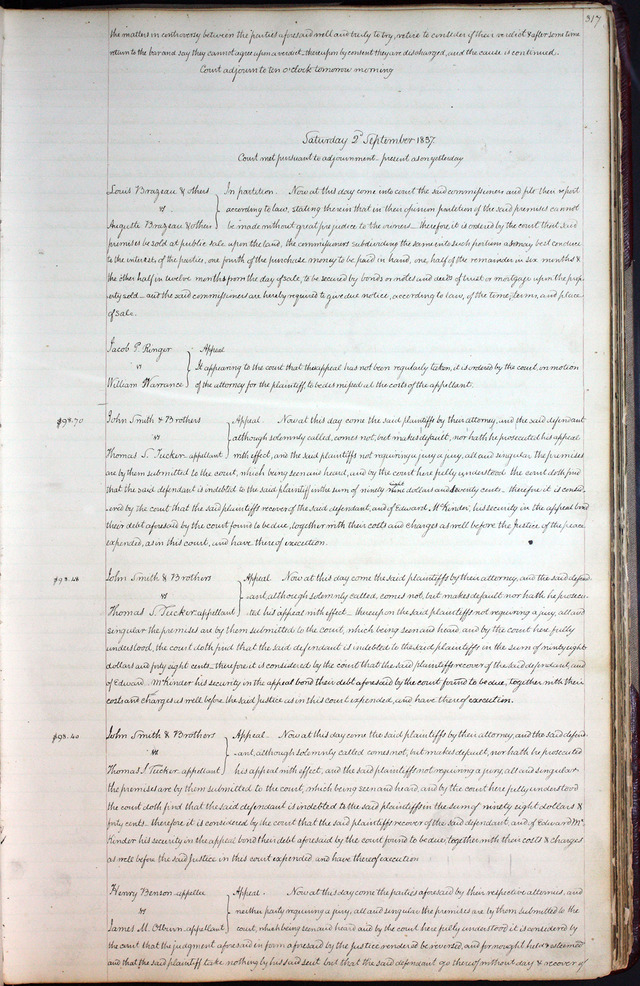 317
the matters in controversy between the parties aforesaid well and truly to try, retire to consider of their verdict & after some time
return to the bar and say they cannot agree upon a verdict. thereupon by consent they are discharged, and the cause is continued.
Court adjourn to ten o'clock tomorrow morning
Saturday 2d September 1837
Court met pursuant to adjournment. present as on yesterday
Louis Brazeau & others In partition. Now at this day come into court the said commissioners and file their report
vs according to law, stating therein that in their opinion partition of the said premises cannot
Auguste Brazeau & others be made without great prejudice to the owners – therefore it is ordered by the court that said
premises be sold at public sale upon the land, the commissioners subdividing the same into such portions as may best conduce
to the interests of the parties, one fourth of the purchase money to be paid in hand, one half of the remainder in six months &
the other half in twelve months from the day of sale, to be secured by bonds or notes and deeds of trust or mortgage upon the prop-
erty sold – and the said commissioners are hereby required to give due notice, according to law, of the time, terms, and place
of sale.
Jacob G. Ringer Appeal
vs It appearing to the court that the appeal has not been regularly taken, it is ordered by the court, on motion
William Warrance of the attorney for the plaintiff, to be dismissed at the costs of the appellant.
$98.70 John Smith & Brothers Appeal. Now at this day come the said plaintiffs by their attorney, and the said defendant
vs although solemnly called, comes not, but makes default, nor hath he prosecuted his appeal
Thomas S. Tucker appellant with effect, and the said plaintiffs not requiring a jury, all and singular the premises
are by them submitted to the court, which being seen and heard, and by the court here fully understood the court doth find
that the said defendant is indebted to the said plaintiff in the sum of ninety eight dollars and seventy cents. therefore it is consid-
ered by the court that the said plaintiffs recover of the said defendant, and of Edward McKinder, his security in the appeal bond
their debt aforesaid by the court found to be due, together with their costs and charges as well before the Justice of the peace
expended, as in this court, and have thereof execution.
$98.48 John Smith & Brothers Appeal Now at this day come the said plaintiffs by their attorney, and the said defend-
vs ant, although solemnly called, comes not, but makes default nor hath he prosecu-
Thomas S. Tucker appellant ted his appeal with effect – thereupon the said plaintiffs not requiring a jury, all and
singular the premises are by them submitted to the court, which being seen and heard, and by the court here fully
understood, the court doth find that the said defendant is indebted to the said plaintiffs in the sum of ninety eight
dollars and forty eight cents – therefore it is considered by the court that the said plaintiffs recover of the said defendant, and
of Edward McKinder his security in the appeal bond their debt aforesaid by the court found to be due, together with their
costs and charges as well before the said Justice as in this court expended, and have thereof execution.
$98.40 John Smith & Brothers Appeal. Now at this day come the said plaintiffs by their attorney, and the said defend-
vs ant, although solemnly called comes not, but makes default, nor hath he prosecuted
Thomas S Tucker appellant his appeal with effect, and the said plaintiffs not requiring a jury, all and singular
the premises are by them submitted to the court, which being seen and heard, and by the court here fully understood
the court doth find that the said defendant is indebted to the said plaintiffs in the sum of ninety eight dollars &
forty cents. therefore it is considered by the court that the said plaintiffs recover of the said defendant, and of Edward Mc
Kinder his security in the appeal bond their debt aforesaid by the court found to be due, together with their costs & charges
as well before the said Justice in this court expended and have thereof execution
Henry Benson appellee Appeal. Now at this day come the parties aforesaid by their respective attornies, and
vs neither party requiring a jury, all and singular the premises are by them submitted to the
James M. Olburn appellant court, which being seen and heard and by the court here fully understood it is considered by
the court that the judgment aforesaid in form aforesaid by the Justice rendered be reversed, and for nought held & esteemed
and that the said plaintiff take nothing by his said suit but that the said defendant go thereof without day & recover of